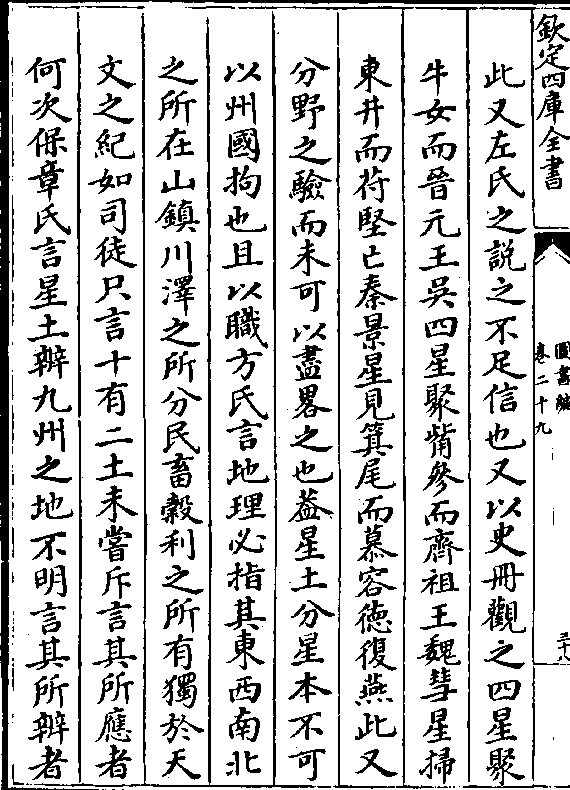 欽定四庫全書
圖書編
卷二十九
三十八
此又左氏之說之不足信也又以史冊觀之四星聚
牛女而晉元王吳四星聚觜參而齊祖王魏彗星掃
東井而苻堅亡秦景星見箕尾而慕容德復燕此又
分野之驗而未可以盡畧之也葢星土分星本不可
以州國拘也且以職方氏言地理必指其東西南北
之所在山鎮川澤之所分民畜穀利之所有獨於天
文之紀如司徒只言十有二土未嘗斥言其所應者
何次保章氏言星土辦九州之地不明言其所辦者